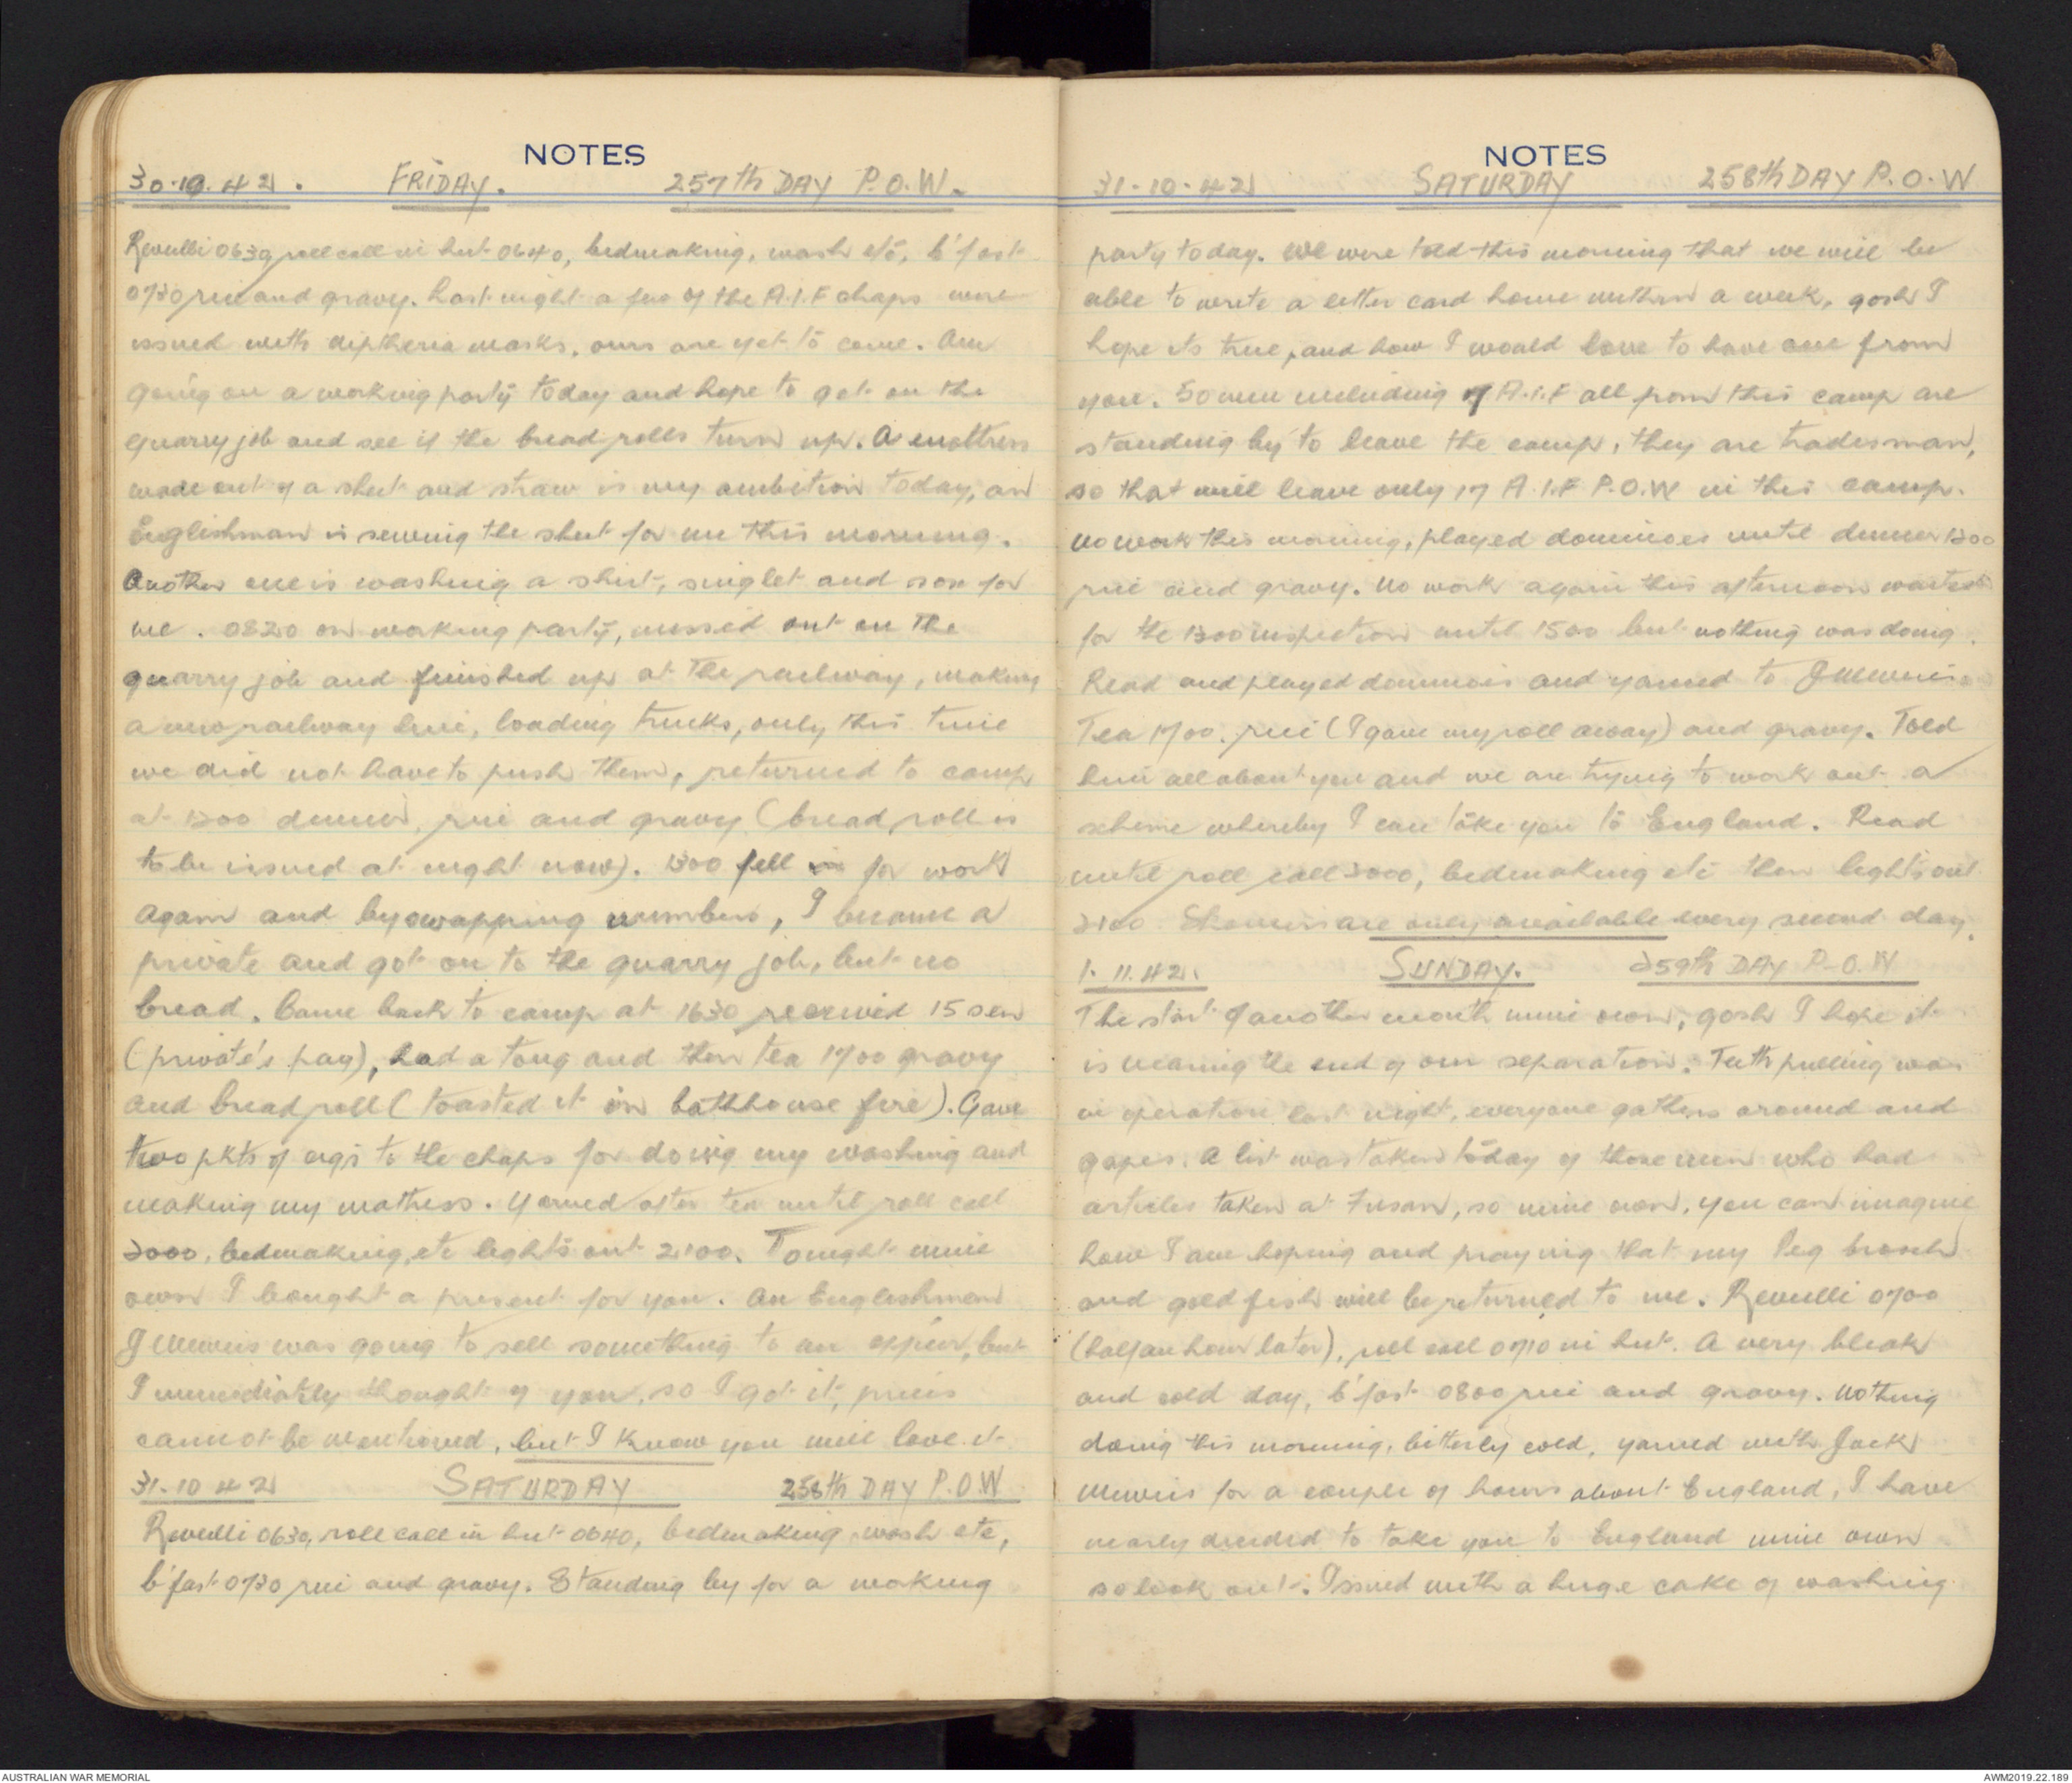 NOTES
30.10.42. FRIDAY. 257th DAY P.O.W.
Reveilli 0630, roll call in hut 0640, bedmaking, wash etc, b'fast
0730 rice and gravy. Last night a few of the A.I.F chaps were
issued with diptheria masks, ours are yet to come. Am
going on a working party today and hope to get on the
quarry job and see if the bread rolls turn up. A mattress
made out of a sheet and straw is my ambition today, an
Englishman is sewing the sheet for me this morning.
Another one is washing a shirt, singlet and sox for
me. 0820 on working party, missed out on the
quarry job and finished up at the railway, making
a new railway line, loading trucks, only this time
we did not have to push them, returned to camp
at 1200 dinner, rice and gravy (bread roll is
to be issued at night now). 1300 fell in for work
again and by swapping numbers, I became a
private and got on to the quarry job, but no
bread. Came back to camp at 1630 received 15 sen
(private's pay), had a tong and then tea 1700 gravy
and bread roll (toasted it in bathhouse fire). Gave
two pkts of cigs to the chaps for doing my washing and
making my mattress. Yarned after tea until roll call
2000, bedmaking, etc lights out 2100. Tonight mine
own I bought a present for you. An Englishman
J was going to sell something to an officer, but
I immediately thought of you, so I got it, price
cannot be mentioned, but I know you will love it.
31.10.42 SATURDAY 258th DAY P.O.W
Reveilli 0630, roll call in hut 0640, bedmaking, wash etc,
b'fast 0730 rice and gravy. Standing by for a working
NOTES
31.10.42 SATURDAY 258th DAY P.O.W
party today. We were told this morning that we will be
able to write a letter card home within a week, gosh I
hope its true, and how I would love to have one from
you. 50 men including 7 A.I.F all from this camp are
standing by to leave the camp, they are tradesman,
so that will leave only 17 A.I.F P.O.W in this camp.
No work this morning, played dominoes until dinner 1200
rice and gravy. No work again this afternoon waited
for the 1300 inspection until 1500 but nothing was doing.
Read and played dominoes and yarned to J
Tea 1700. rice (I gave my roll away) and gravy. Told
him all about you and we are trying to work out a
scheme whereby I can take you to England. Read
until roll call 2000, bedmaking etc then lights out
2100. Showers are only available every second day.
1.11.42. SUNDAY. 259th DAY P.O.W
The start of another month mine own, gosh I hope it
is nearing the end of our separation. Teeth pulling was
in operation last night, everyone gathers around and
gapes. A list was taken today of those men who had
articles taken at Fusan, so mine own, you can imagine
how I am hoping and praying that my Peg brooch
and gold fish will be returned to me. Reveilli 0700
(half an hour later), roll call 0710 in hut. A very bleak
and cold day, b'fast 0800 rice and gravy. Nothing
doing this morning, bitterly cold, yarned with Jack
for a couple of hours about England, I have
nearly decided to take you to England mine own
so look out. Issued with a huge cake of washing
AUSTRALIAN WAR MEMORIAL
AWM2019.22.189